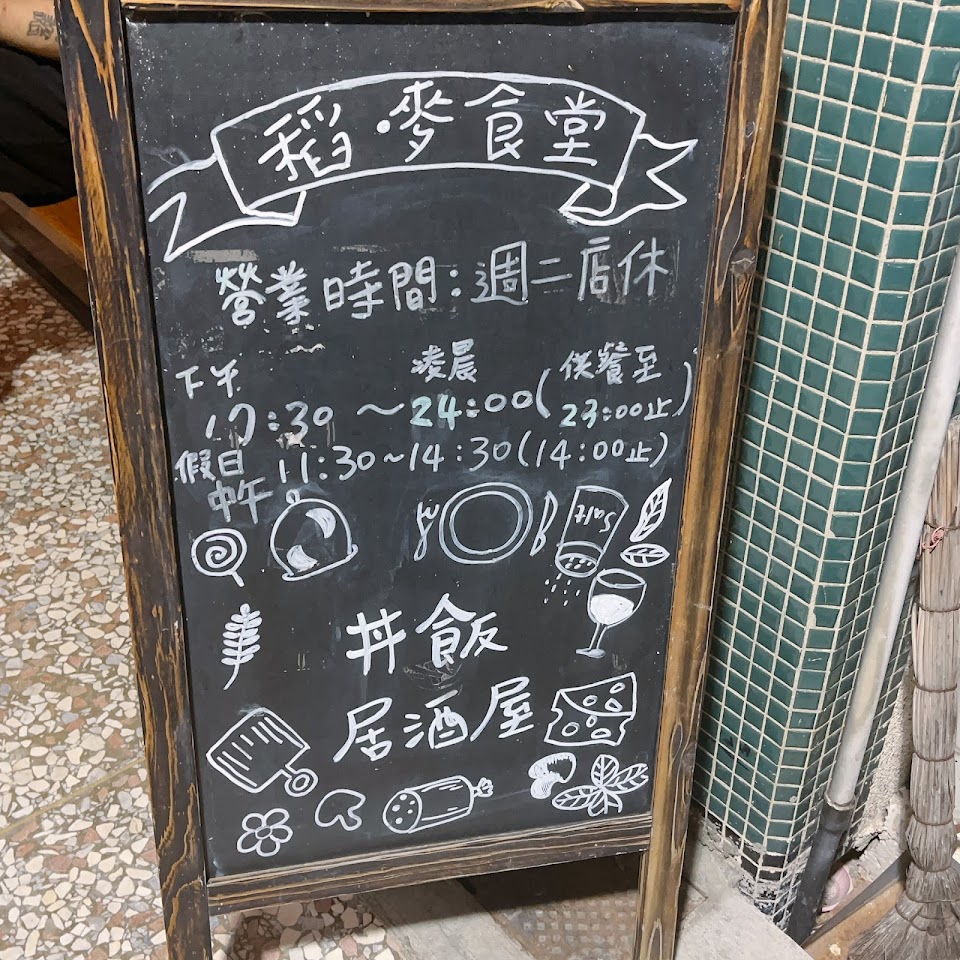 稻·麥食堂
營業時間:週二店休
下午 凌晨 供餐至
17:30 ~ 24:00 (23:00止)
假日中午 11:30~14:30(14:00止)
Salt
丼飯
居酒屋